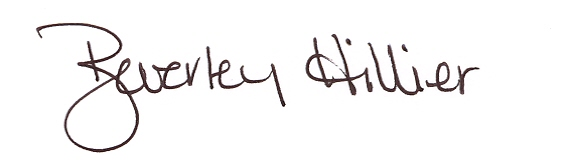 Beverley Hillier